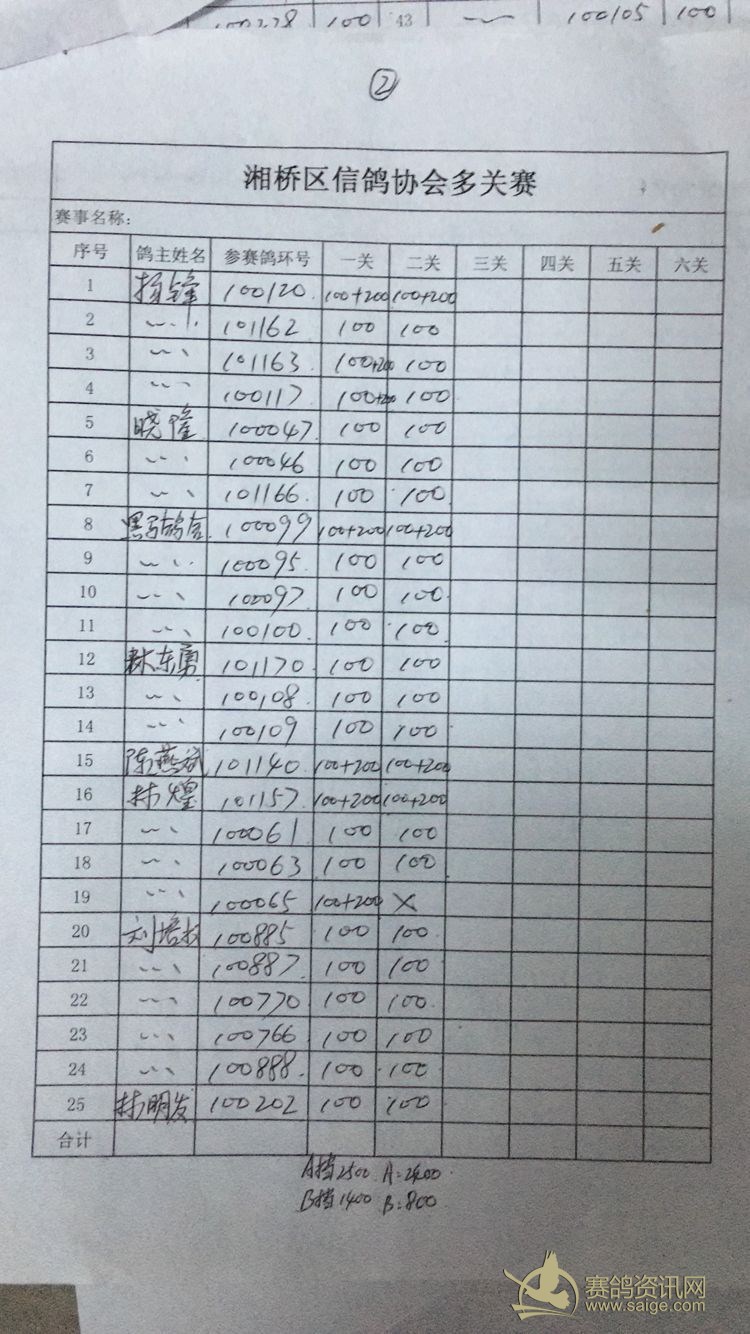 100228 100 43 〃 100105 100
②
湘桥区信鸽协会多关赛
赛事名称:
序号 鸽主姓名 参赛鸽环号 一关 二关 三关 四关 五关 六关
1 杨锋 100120 100+200 100+200
2 〃 101162 100 100
3 〃 101163 100+200 100
4 〃 100117 100+200 100
5 晓隆 100047 100 100
6 〃 100046 100 100
7 〃 101166 100 100
8 100099 100+200 100+200
9 〃 100095 100 100
10 〃 100097 100 100
11 〃 100100 100 100
12 林东勇 101170 100 100
13 〃 100108 100 100
14 〃 100109 100 100
15 陈燕斌 101140 100+200 100+200
16 林煌 101157 100+200 100+200
17 〃 100061 100 100
18 〃 100063 100 100
19 〃 100065 100+200 ×
20 刘培 100885 100 100
21 〃 100887 100 100
22 〃 100770 100 100
23 〃 100766 100 100
24 〃 100888 100 100
25 林明发 100202 100 100
合计
A档2500 A:2400
B档1400 B:800
赛鸽资讯网
www.saige.com